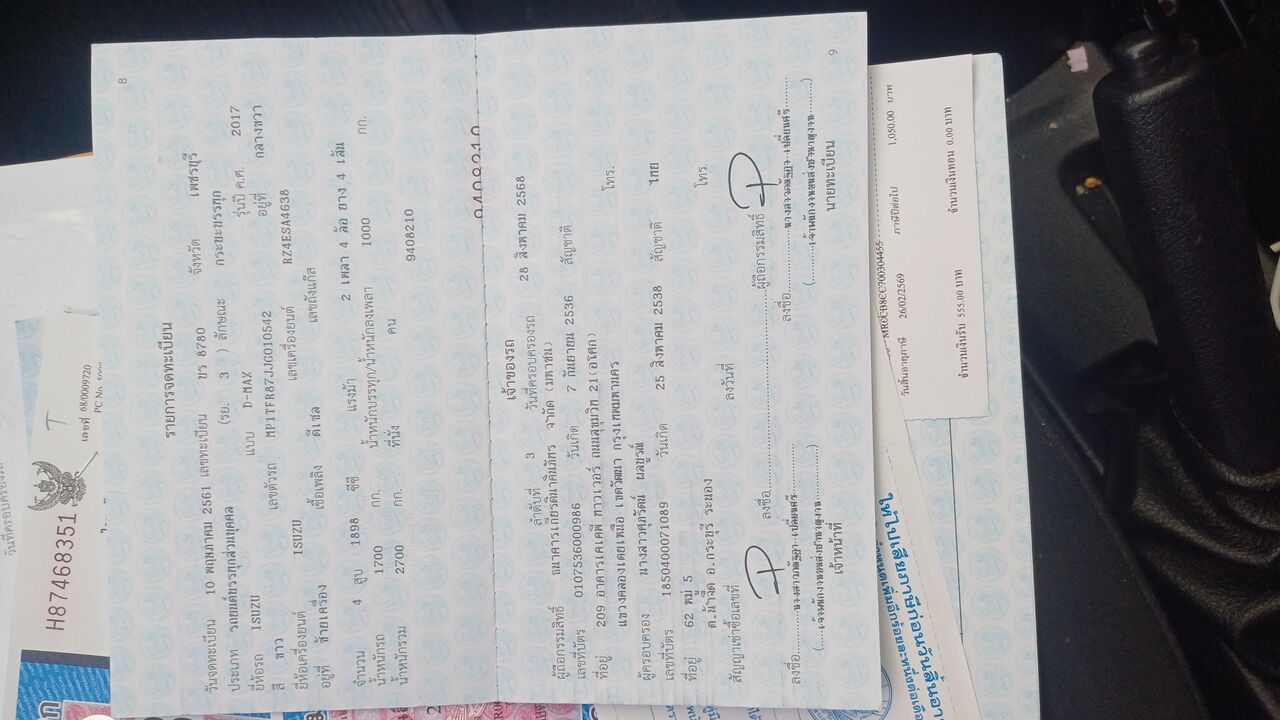 8
รายการจดทะเบียน
วันจดทะเบียน 10 พฤษภาคม 2561 เลขทะเบียน ขร 8780 จังหวัด เพชรบุรี
ประเภท รถยนต์บรรทุกส่วนบุคคล (รย. 3 ) ลักษณะ กระบะบรรทุก
ยี่ห้อรถ ISUZU แบบ D-MAX รุ่นปี ค.ศ. 2017
สี ขาว เลขตัวรถ MP1TFR87JJG010542 อยู่ที่ กลางขวา
ยี่ห้อเครื่องยนต์ ISUZU เลขเครื่องยนต์ RZ4ESA4638
อยู่ที่ ซ้ายเครื่อง เชื้อเพลิง ดีเซล เลขถังแก๊ส
จำนวน 4 สูบ 1898 ซีซี แรงม้า 2 เพลา 4 ล้อ ยาง 4 เส้น
น้ำหนักรถ 1700 กก. น้ำหนักบรรทุก/น้ำหนักลงเพลา 1000 กก.
น้ำหนักรวม 2700 กก. ที่นั่ง คน 9408210
9408210
เจ้าของรถ
ลำดับที่ 3 วันที่ครอบครองรถ 28 สิงหาคม 2568
ผู้ถือกรรมสิทธิ์ ธนาคารเกียรตินาคินภัทร จำกัด (มหาชน)
เลขที่บัตร 0107536000986 วันเกิด 7 กันยายน 2536 สัญชาติ
ที่อยู่ 209 อาคารเคเคพี ทาวเวอร์ ถนนสุขุมวิท 21(อโศก) โทร.
แขวงคลองเตยเหนือ เขตวัฒนา กรุงเทพมหานคร
ผู้ครอบครอง นางสาวศุภรัตน์ ผลบูรณ์
เลขที่บัตร 1850400071089 วันเกิด 25 สิงหาคม 2538 สัญชาติ ไทย
ที่อยู่ 62 หมู่ 5 โทร.
ต.น้ำจืด อ.กระบุรี ระนอง
สัญญาเช่าซื้อเลขที่ ลงวันที่
ลงชื่อ ผู้ถือกรรมสิทธิ์
ลงชื่อ ลงชื่อ
เจ้าหน้าที่ นายทะเบียน
9
H87468351
เลขที่ 68/0009720
วันที่ครอบครองรถ
MR0CB8CC700304455
วันสิ้นอายุภาษี 26/02/2569 ภาษีปีต่อไป 1,050.00 บาท
จำนวนเงินรับ 555.00 บาท จำนวนเงินทอน 0.00 บาท